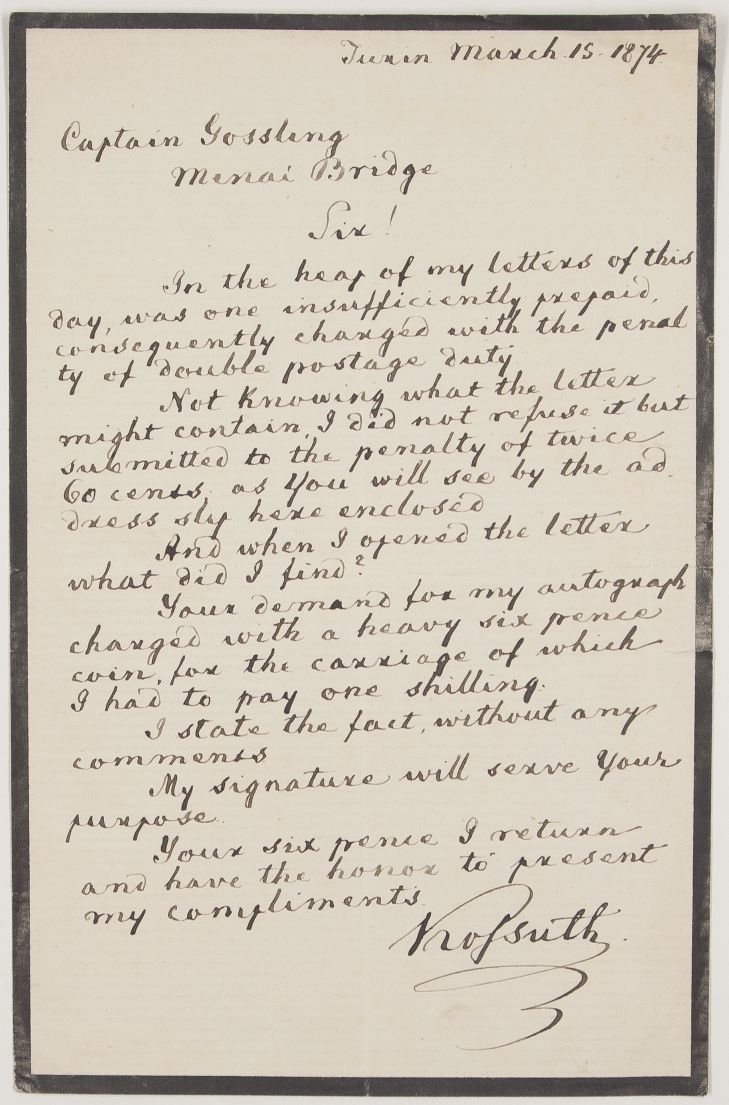 Turin March 15 - 1874
Captain Gossling
Menai Bridge
Sir!
In the heap of my letters of this
day, was one insufficiently prepaid,
consequently charged with the penal
ty of double postage duty
Not Knowing what the letter
might contain, I did not refuse it but
submitted to the penalty of twice
60 cents, as You will see by the ad.
dress slip here enclosed
And when I opened the letter
what did I find?
Your demand for my autograph
charged with a heavy six pence
coin, for the carriage of which
I had to pay one shilling.
I state the fact, without any
comments
My signature will serve Your
purpose.
Your six pence I return
and have the honor to present
my compliments.
Kossuth.